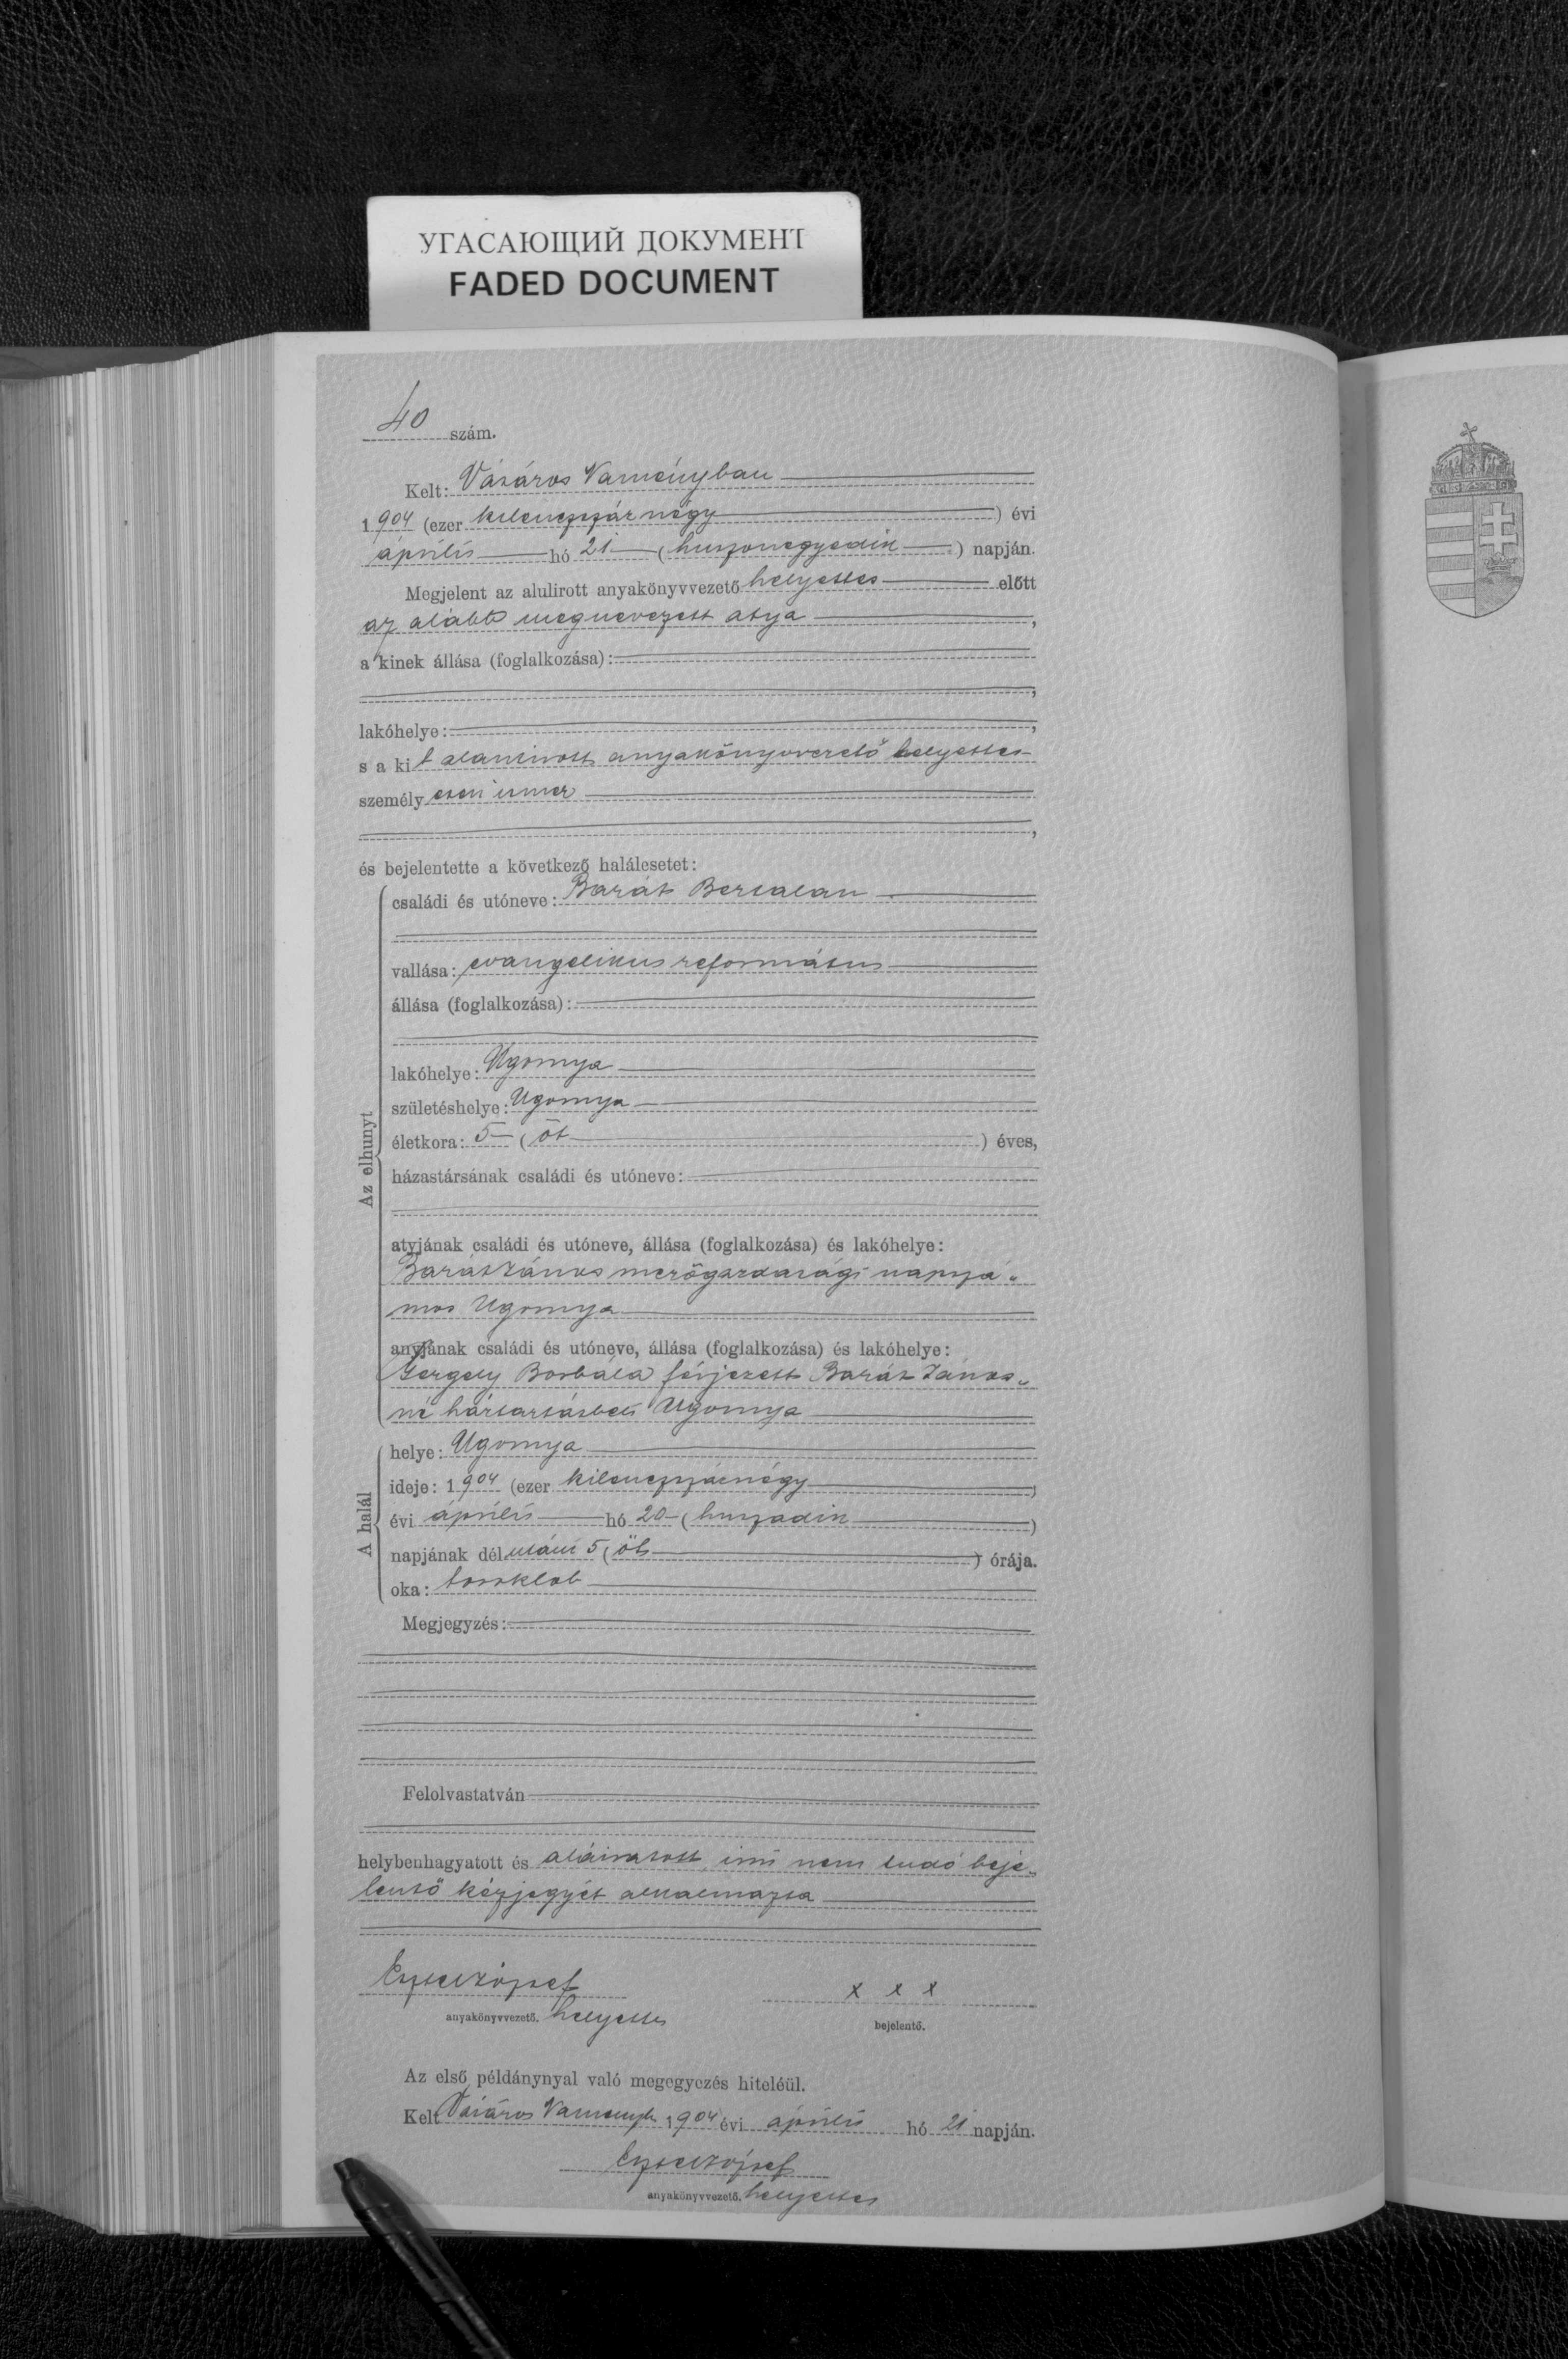 УГАСАЮЩИЙ ДОКУМЕНТ
FADED DOCUMENT
40 szám.
Kelt: Vásáros Naményban
1904 (ezer kilenczszáz négy) évi
április hó 21 (huszonegyedik) napján.
Megjelent az alulirott anyakönyvvezető helyettes előtt
az alább megnevezett atya,
a kinek állása (foglalkozása):
lakóhelye:
s a kit alantirott anyakönyvvezető helyettes
személyesen ismer
és bejelentette a következő halálesetet:
Az elhunyt
családi és utóneve: Barát Bertalan
vallása: evangelikus református
állása (foglalkozása):
lakóhelye: Ugornya
születéshelye: Ugornya
életkora: 5 (öt) éves,
házastársának családi és utóneve:
atyjának családi és utóneve, állása (foglalkozása) és lakóhelye:
Barát János mezőgazdasági napszá„
mos Ugornya
anyjának családi és utóneve, állása (foglalkozása) és lakóhelye:
Gergely Borbála férjezett Barát János„
né háztartásbeli Ugornya
A halál
helye: Ugornya
ideje: 1904 (ezer kilenczszáznégy)
évi április hó 20 (huszadik)
napjának délutáni 5 (öt) órája.
oka: toroklob
Megjegyzés:
Felolvastatván
helybenhagyatott és aláiratott, irni nem tudó beje„
lentő kézjegyét alkalmazta
József x x x
anyakönyvvezető. helyettes bejelentő.
Az első példánynyal való megegyezés hiteléül.
Kelt Vásáros Naményb 1904 évi április hó 21 napján.
József
anyakönyvvezető. helyettes